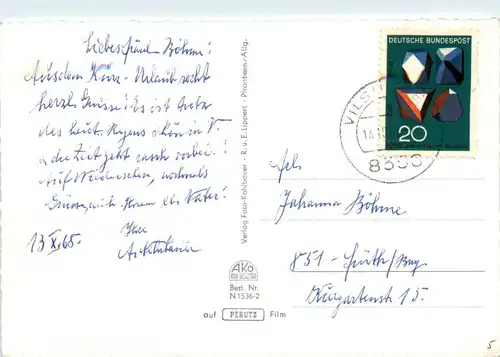 Liebes Fräul. Böhme!
Aus dem Kurz-Urlaub recht
herzl. Grüsse! Es ist trotz
des heut. Regens schön in V.
u. die Zeit geht rasch vorbei!
Auf Wiedersehen, nochmals
Grüsse, auch Ihrem lb. Vater!
Ihre
13.X.68.
Verlag Foto-Kohlbauer - R. u. E. Lipperl - Pfronten/Allg.
AKO
Best. Nr.
N 1536-2
auf PERUTZ Film
DEUTSCHE BUNDESPOST
20
VILS
14.10
8300
Frl.
Johanna Böhme
851 - Fürth/Bay.
Kurgartenstr. 15.
5